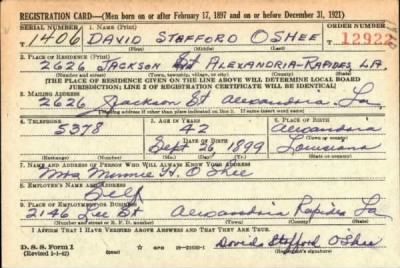 REGISTRATION CARD—(Men born on or after February 17, 1897 and on or before December 31, 1921)
SERIAL NUMBER 1. NAME (Print) ORDER NUMBER
T 1406 DAVID STAFFORD O'SHEE 12922
(First) (Middle) (Last)
2. PLACE OF RESIDENCE (Print)
2626 JACKSON St ALEXANDRIA-RAPIDES LA
(Number and street) (Town, township, village, or city) (County) (State)
[THE PLACE OF RESIDENCE GIVEN ON THE LINE ABOVE WILL DETERMINE LOCAL BOARD
JURISDICTION; LINE 2 OF REGISTRATION CERTIFICATE WILL BE IDENTICAL]
3. MAILING ADDRESS
2626 Jackson St Alexandria, La
[Mailing address if other than place indicated on line 2. If same insert word same]
4. TELEPHONE 5. AGE IN YEARS 6. PLACE OF BIRTH
5378 42 Alexandria
DATE OF BIRTH (Town or county)
Sept 26, 1899 Louisiana
(Exchange) (Number) (Mo.) (Day) (Yr.) (State or country)
7. NAME AND ADDRESS OF PERSON WHO WILL ALWAYS KNOW YOUR ADDRESS
Mrs Minnie H. O'Shee
8. EMPLOYER'S NAME AND ADDRESS
Self
9. PLACE OF EMPLOYMENT OR BUSINESS
2146 Lee St Alexandria Rapides La
(Number and street or R. F. D. number) (Town) (County) (State)
I AFFIRM THAT I HAVE VERIFIED ABOVE ANSWERS AND THAT THEY ARE TRUE.
D. S. S. Form 1
(Revised 1-1-42) David Stafford O'Shee